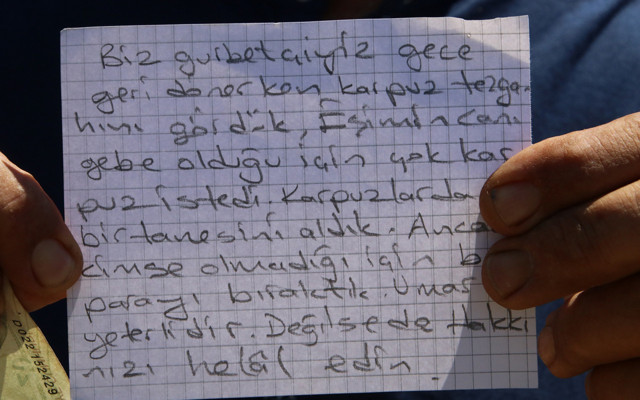 Biz gurbetçiyiz gece
geri dönerken karpuz tezga-
hını gördük, Eşimin canı
gebe olduğu için çok kar
puz istedi. Karpuzlarda
bir tanesini aldık. Anca
kimse olmadığı için b
parayı bıraktık. Umar
yeterlidir. Değilse de Hakkı
nızı helâl edin.
002 152429